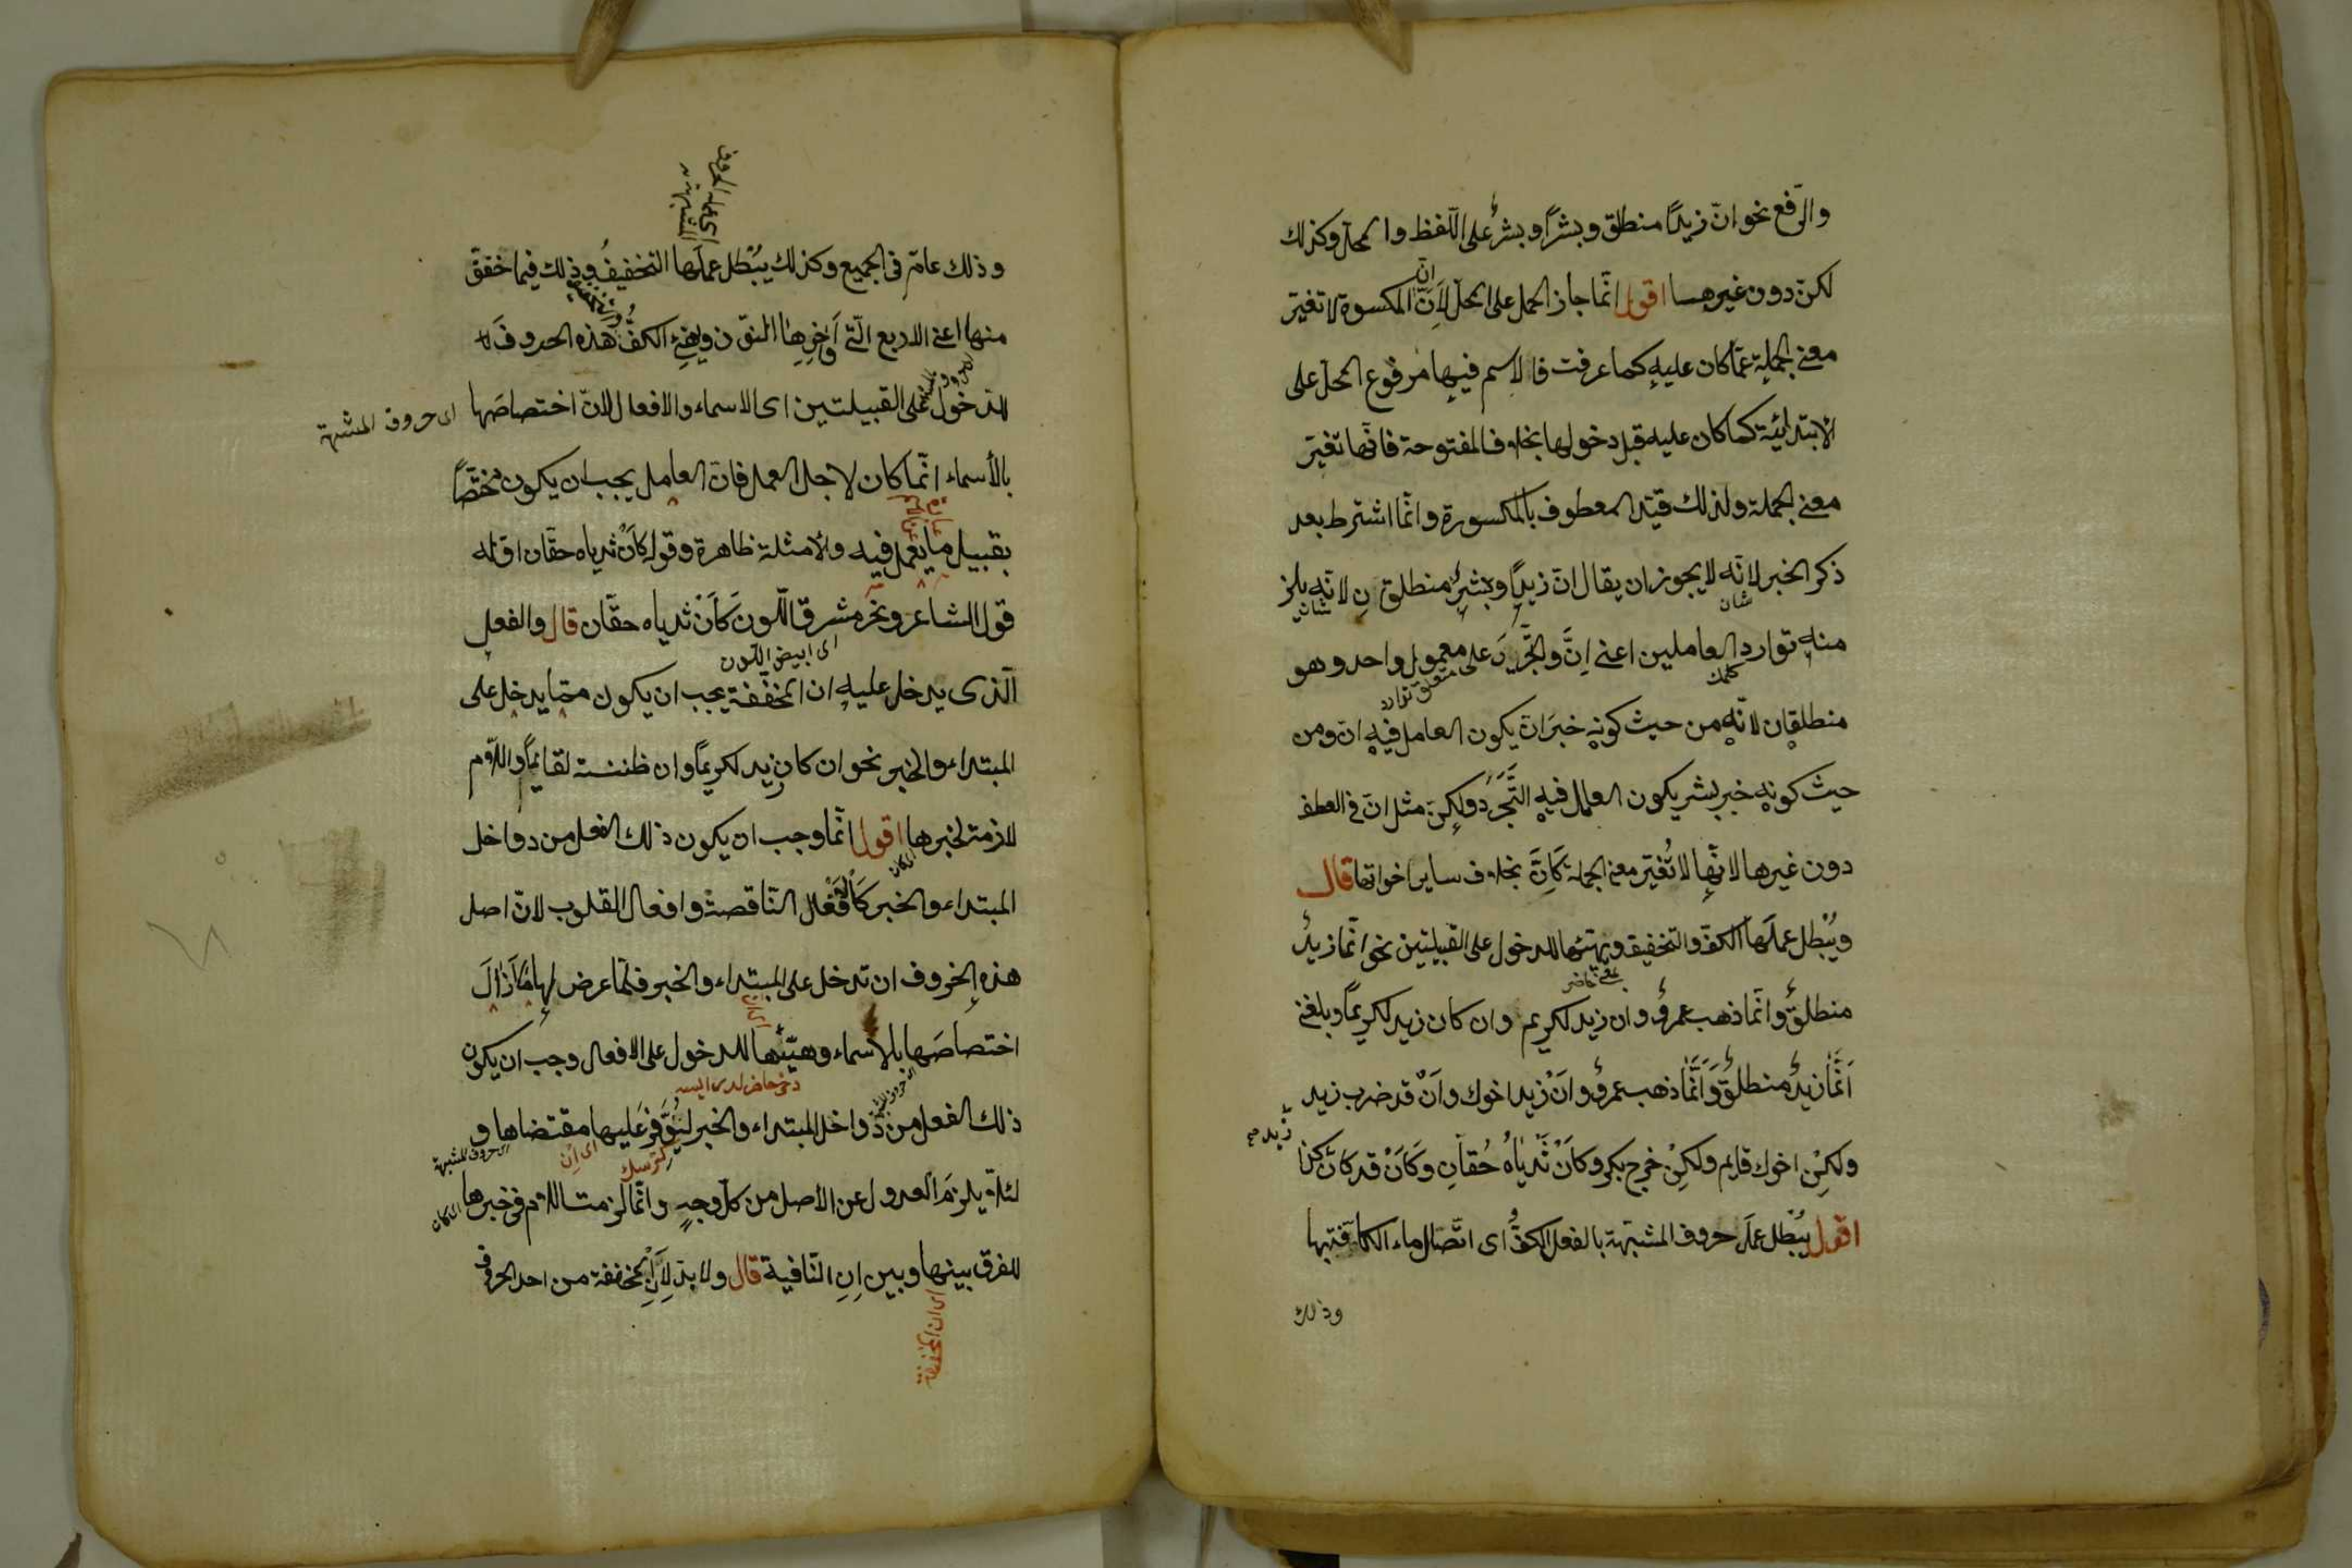 والرّفع نحو انّ زيدًا منطلق وبشرًا وبشرٌ على اللّفظ والمحلّ وكذلك
لكنّ دون غيرهما اقول انّما جاز الحمل على المحلّ لأنّ المكسورة لا تغيّر
معنى الجملة عمّا كان عليه كما عرفت فالاسم فيها مرفوع المحلّ على
الابتدائيّة كما كان عليه قبل دخولها بخلاف المفتوحة فانّها تغيّر
معنى الجملة ولذلك قيّد المعطوف بالمكسورة وانّما اشترط بعد
ذكر الخبر لانّه لا يجوز ان يقال انّ زيدًا وبشر منطلقان لانّه يلزم
منه توارد العاملين اعنى انّ والتجريد على معمول واحد وهو
متعلق توارد
منطلقان لانّه من حيث كونه خبر انّ يكون العامل فيه انّ ومن
حيث كونه خبر بشر يكون العامل فيه التّجرّد ولكنّ مثل انّ فى العطف
دون غيرها لانّها لا تُغيّر معنى الجملة كَاِنَّ بخلاف ساير اخواتها قال
ويُبْطل عملَها الكفّ والتخفيف ويهيّئها للدخول على القبيلتين نحو انّما زيدٌ
منطلقٌ وانّما ذهب عمروٌ وان زيد لكريم وان كان زيد لكريمًا وبلغنى
اَنَّمَا زيدٌ منطلقٌ وَاَنَّمَا ذهب عمروٌ وانْ زيدا خوك وانْ قد ضرب زيد
ولكِنْ اخوك قايم ولكِنْ خرج بكر وكَاَنْ ثَدياهُ حُقّانِ وكَاَنْ قد كان كذا
زيد صح
اقول يُبْطل عملَ حروف المشبّهة بالفعل الكفُّ اى اتّصال ماء الكافّة بها
وذلك
اى عمل الحروف
المشبهة
وذلك عامّ فى الجميع وكذلك يُبْطل عملَها التخفيفُ وذلك فيما خفّف
منها اعنى الاربع الّتى آواخرها النّون ويهيّئ الكفُّ هذه الحروفَ
للدخول على القبيلتين اى الاسماء والافعال لانّ اختصاصَها
اى حروف المشبهة
بالأسماء انّما كان لاجل العمل فانّ العامل يجب ان يكون مختصًّا
بقبيل ما يعمل فيه والامثلة ظاهرة وقوله كانْ ثدياه حقّان اوّله
قول الشاعر ونحر مشرق اللّون كَاَنْ ثدياه حقّان قال والفعل
اى ابيض اللون
الّذى يدخل عليه ان المخفّفة يجب ان يكون ممّا يدخل على
المبتداء والخبر نحو ان كان زيد لكريمًا وان ظننته لقايمًا واللّام
لازمة لخبرها اقول انّما وجب ان يكون ذلك الفعل من دواخل
المبتداء والخبر كالافعال النّاقصة وافعال القلوب لانّ اصل
هذه الحروف ان تدخل على المبتداء والخبر فلمّا عرض لها ما اَزالَ
اختصاصَها بالاسماء وهيّئها للدخول على الافعال وجب ان يكون
ذلك الفعل من دواخل المبتداء والخبر ليُوَفَّر عليها مقتضاها و
اى حروف المشبهة
لئلّا يلزمَ العدول عن الأصل من كلّ وجهٍ وانّما لزمت اللام فى خبرها
للفرق بينها وبين اِنِ النّافية قال ولا بدّ لِاَنِ المخففة من احد الحروف
اى ان المخففة